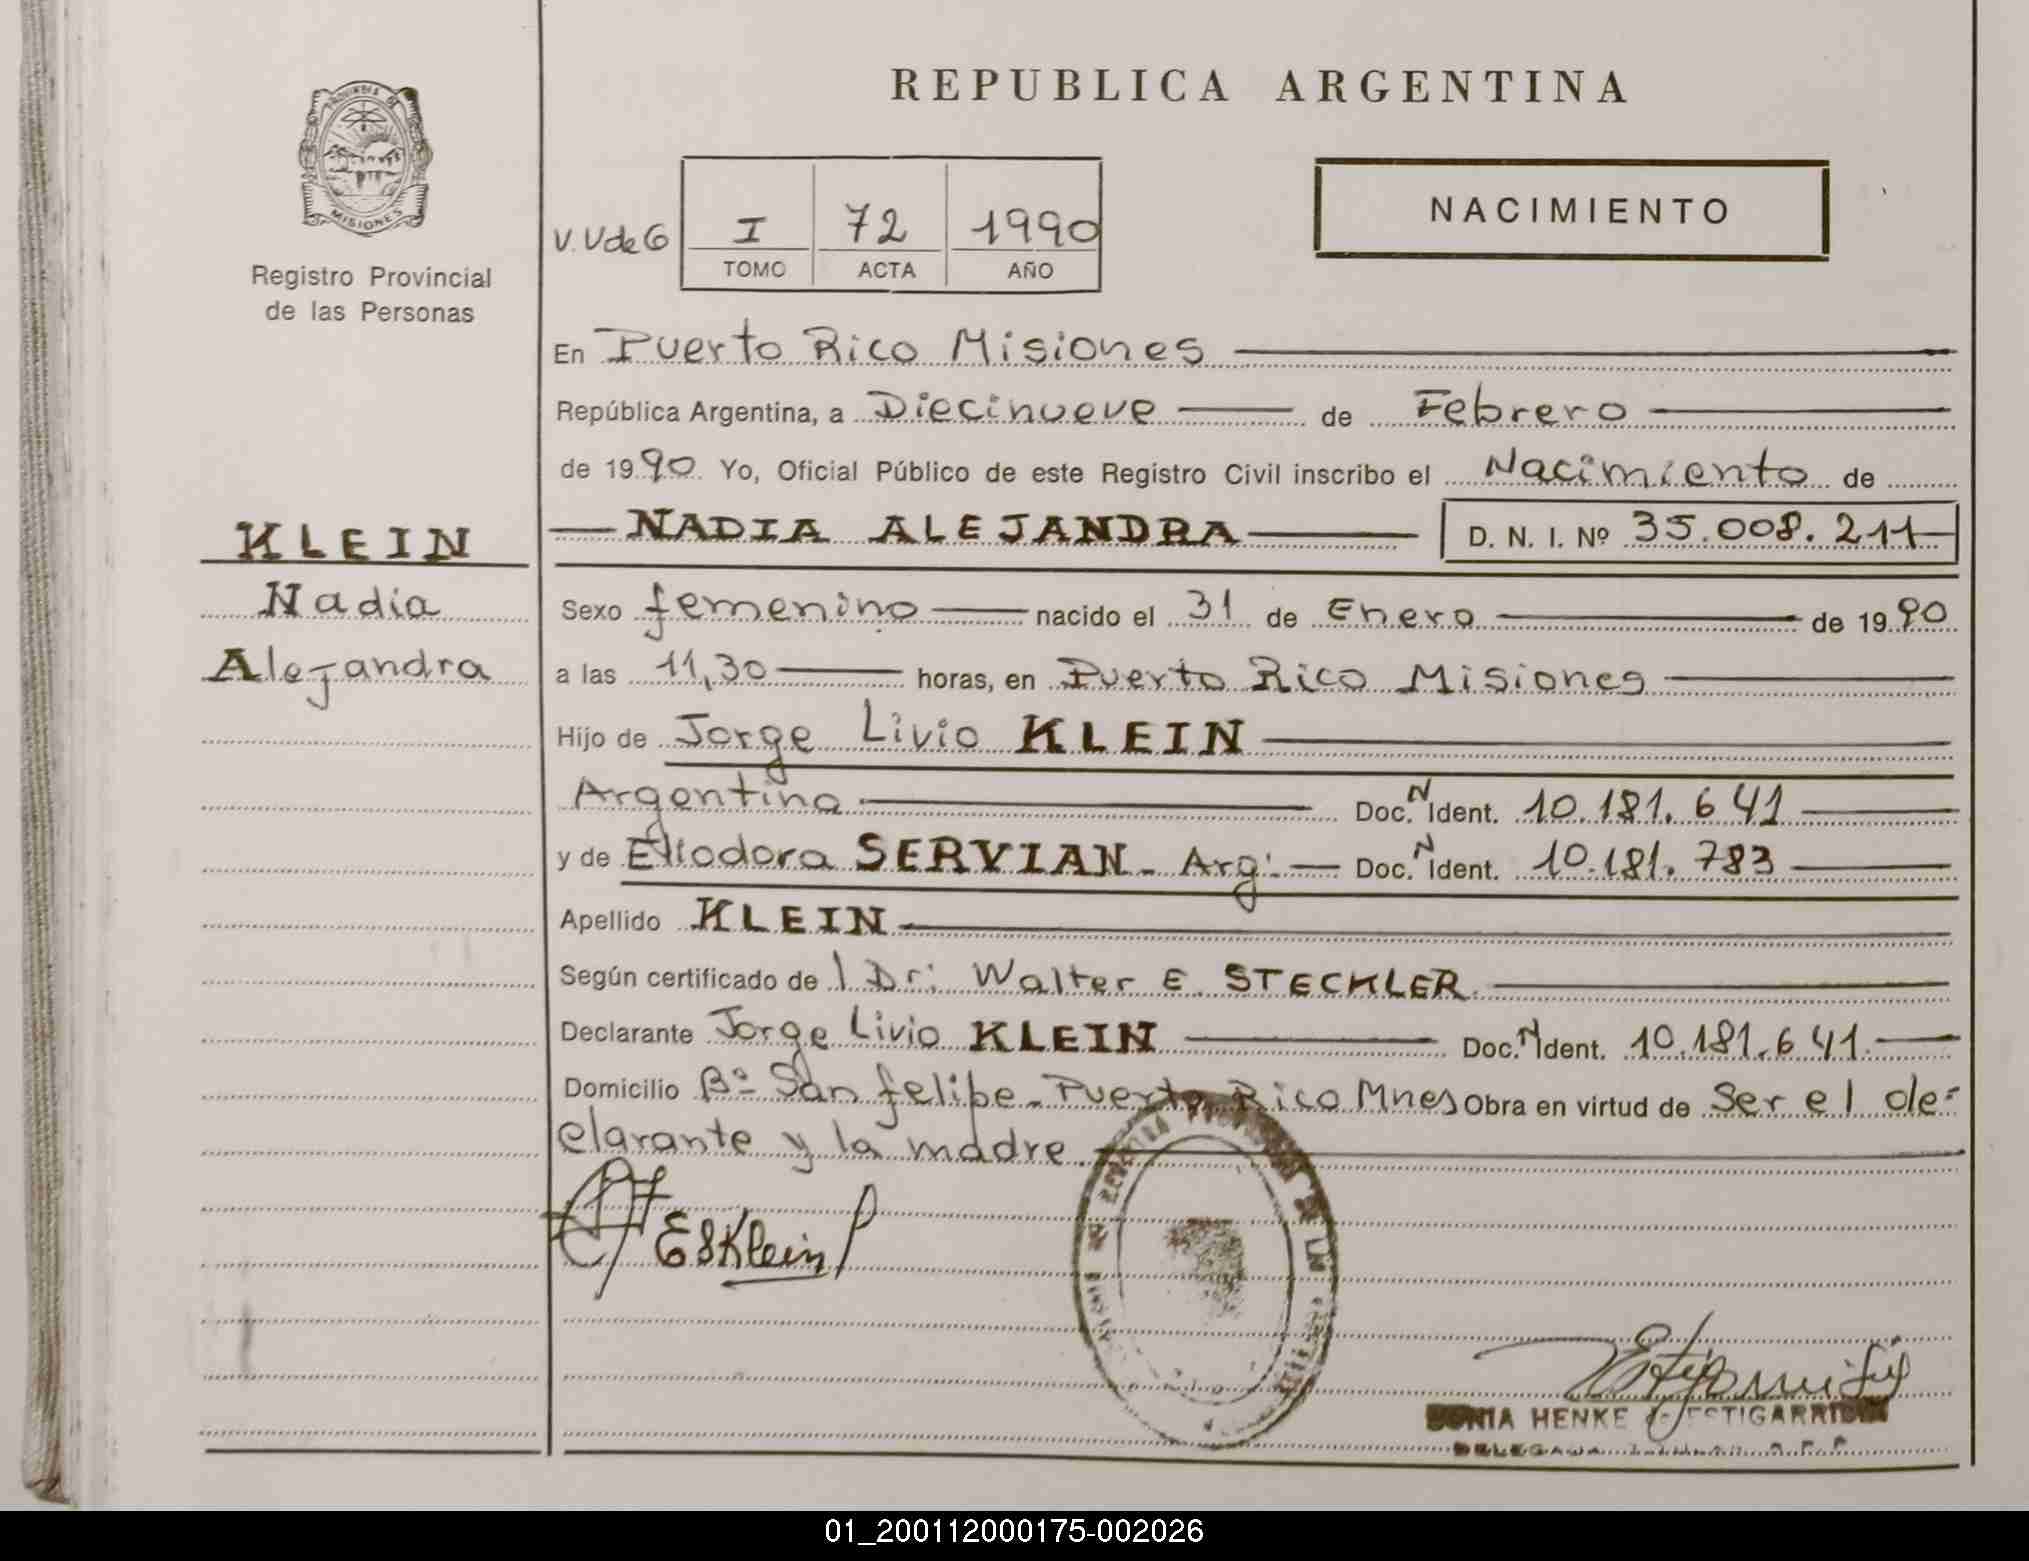 REPUBLICA ARGENTINA
PROVINCIA DE
MISIONES
Registro Provincial
de las Personas
NACIMIENTO
V.V de G
I 72 1990
TOMO ACTA AÑO
En Puerto Rico Misiones
República Argentina, a Diecinueve de Febrero
de 1990 Yo, Oficial Público de este Registro Civil inscribo el Nacimiento de
KLEIN
Nadia
Alejandra
NADIA ALEJANDRA D. N. I. Nº 35.008.211
Sexo femenino nacido el 31 de Enero de 1990
a las 11,30 horas, en Puerto Rico Misiones
Hijo de Jorge Livio KLEIN
Argentina Doc. N Ident. 10.181.641
y de Eliodora SERVIAN - Arg: Doc. N Ident. 10.181.783
Apellido KLEIN
Según certificado de l Dr: Walter E. STECKLER.
Declarante Jorge Livio KLEIN Doc. N Ident. 10.181.641.
Domicilio Bº San felipe - Puerto Rico Mnes Obra en virtud de Ser el de-
clarante y la madre.
ESKlein
SONIA HENKE de ESTIGARRIBIA
DELEGADA
01_200112000175-002026